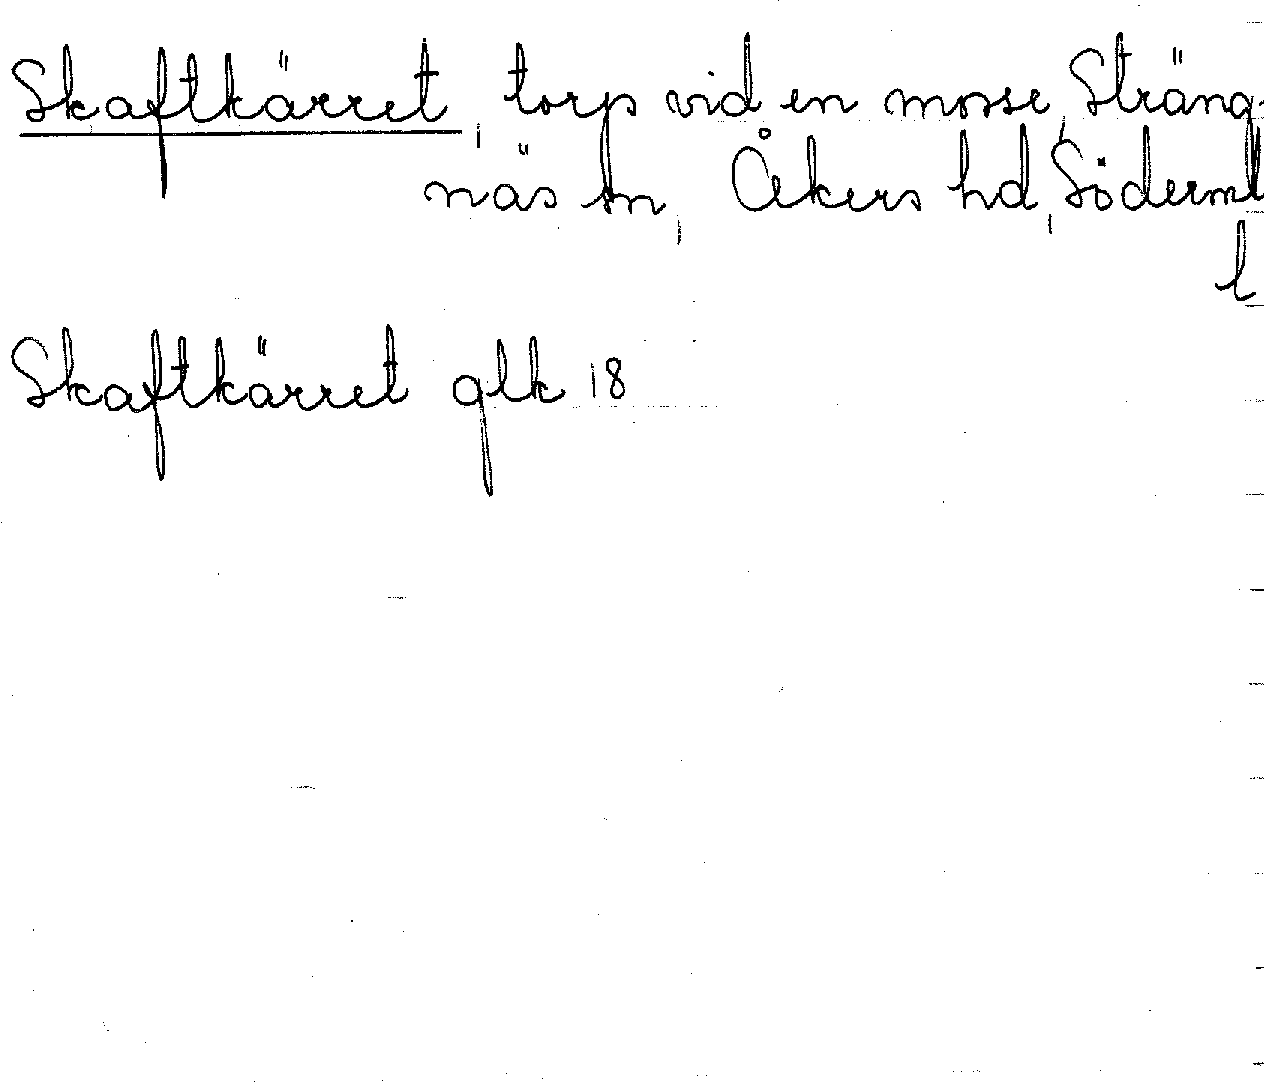 Skaftkärret, torp vid en mosse, Sträng-
näs sn, Åkers hd, Söderml
l
Skaftkärret glk 18